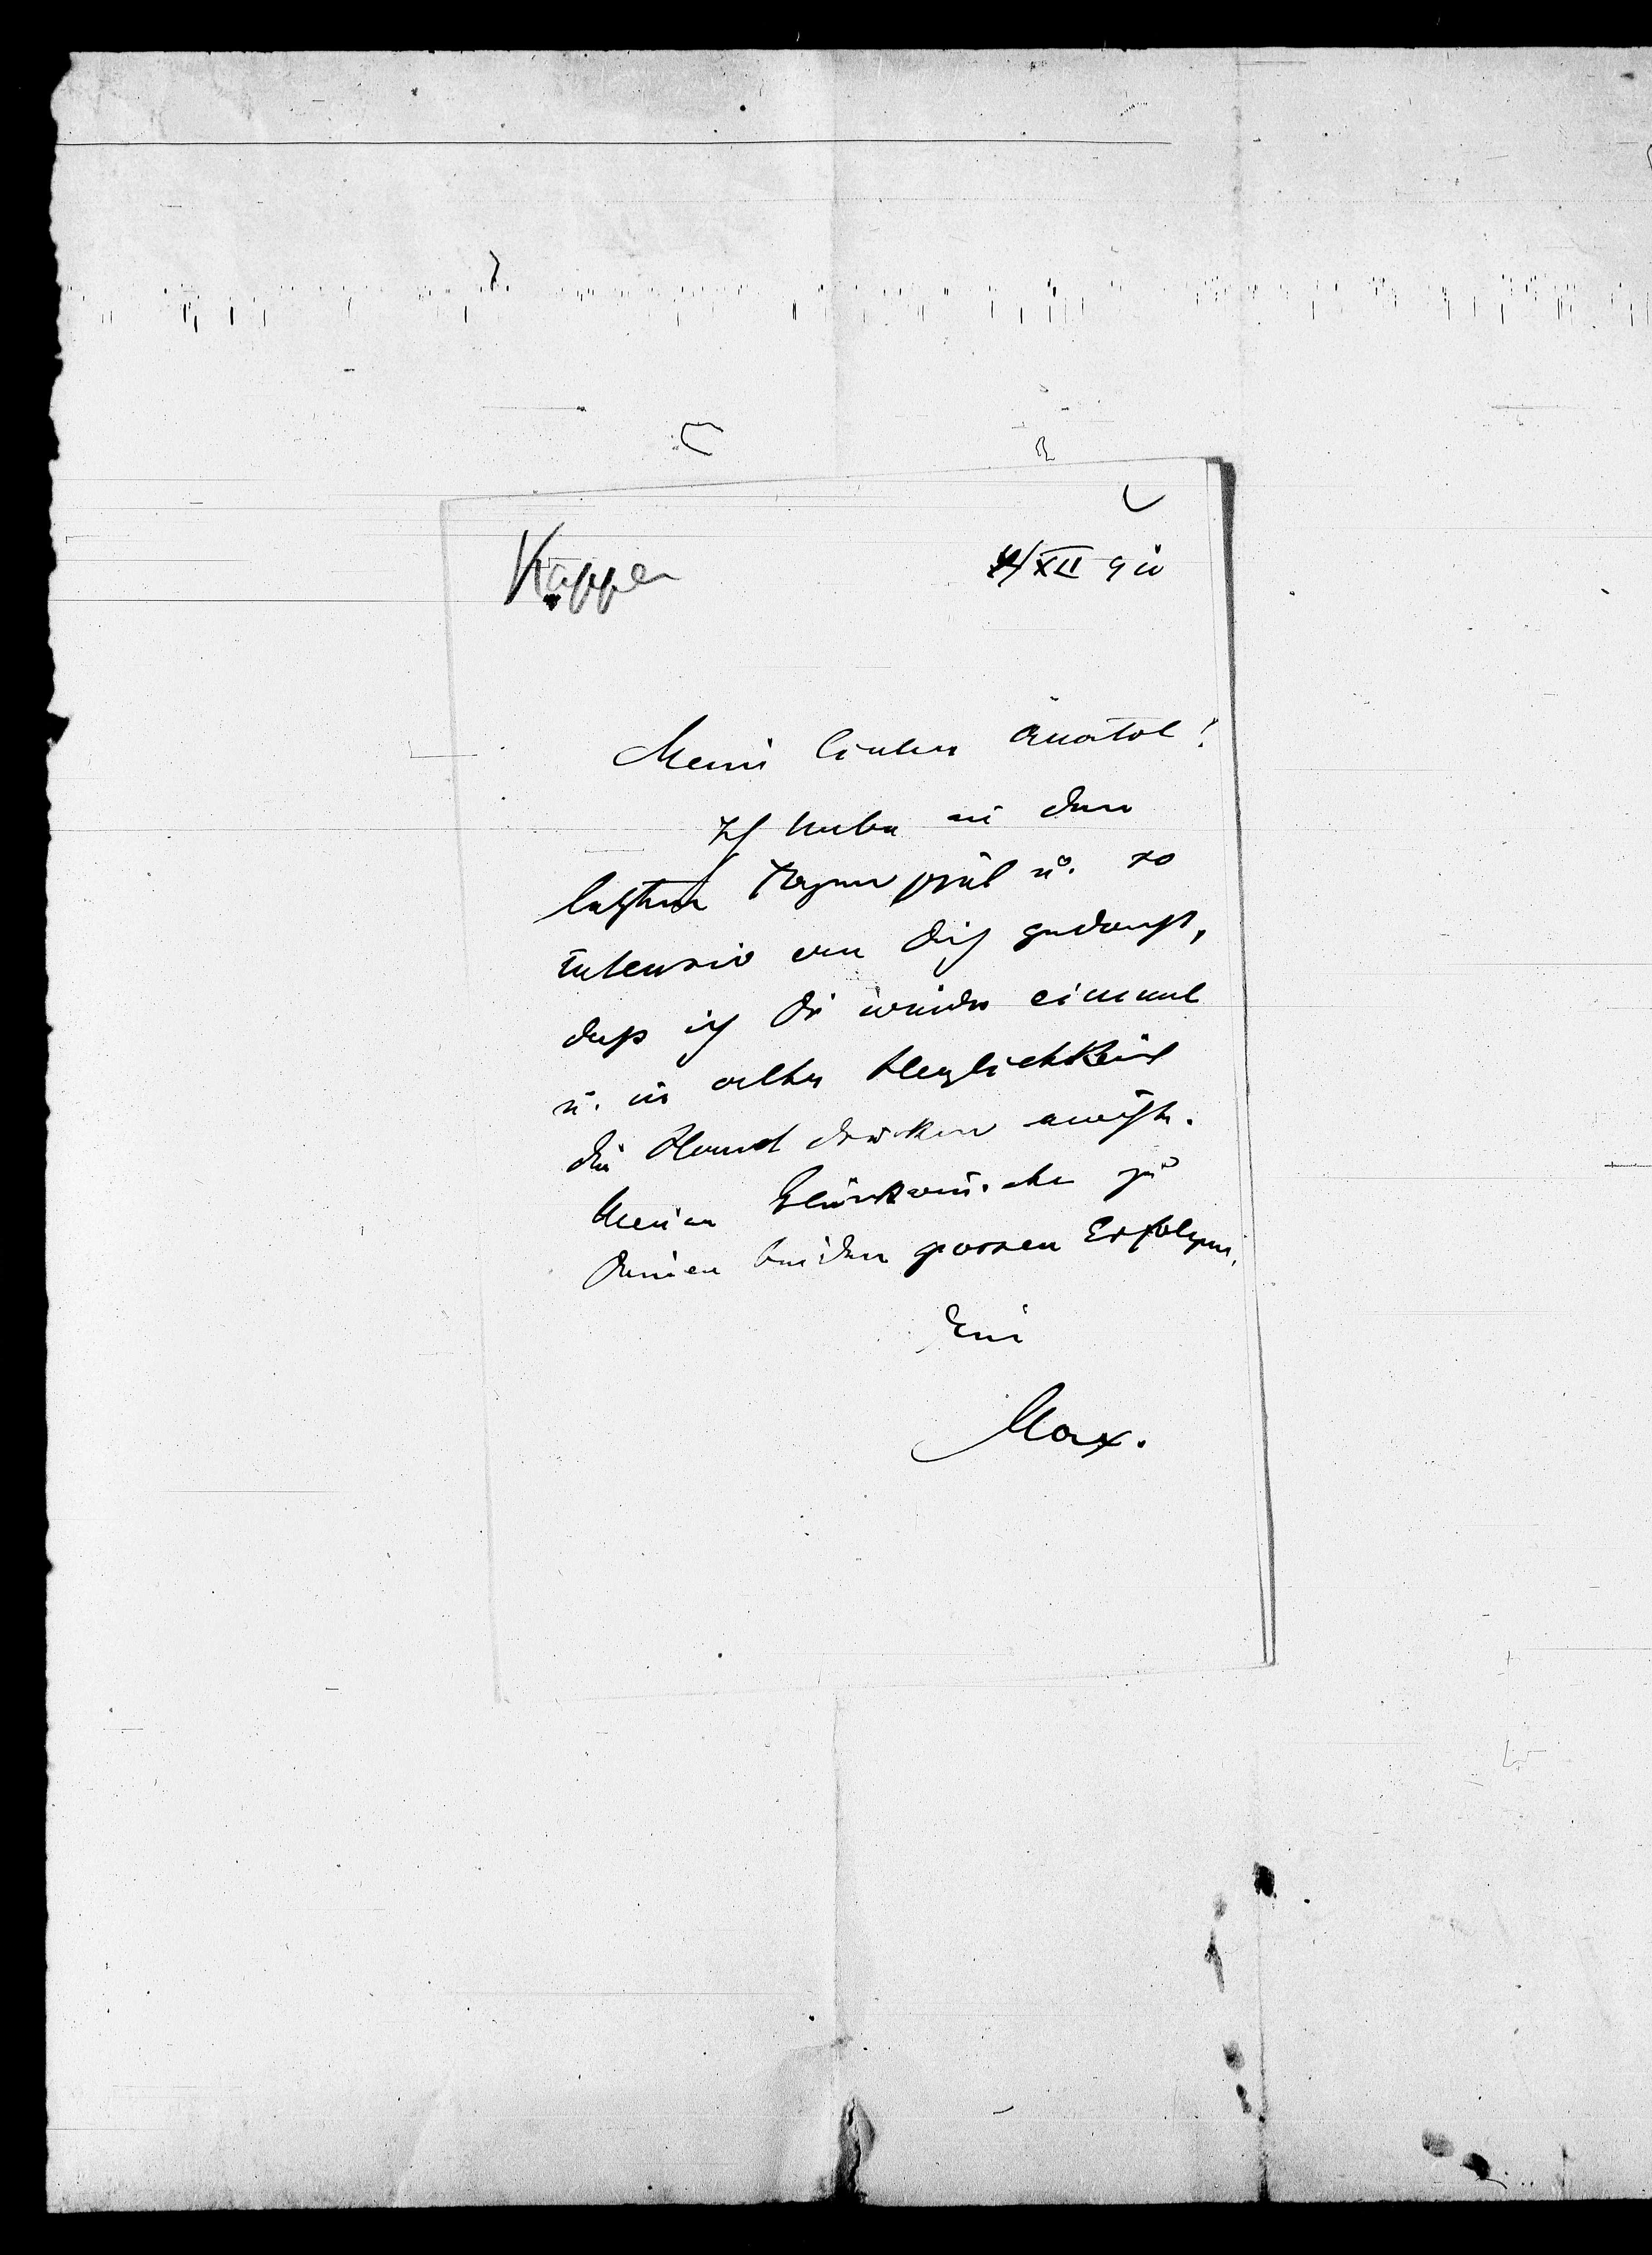 Kapper
4/XII 910
Mein lieber Anatol!
Ich habe in den
letzten Tagen so viel u. so
intensiv an Dich gedacht,
dass ich Dir wieder einmal
u. in alter Herzlichkeit
die Hand drücken möchte.
Meine Glückwünsche zu
Deinen beiden grossen Erfolgen.
Dein
Max.